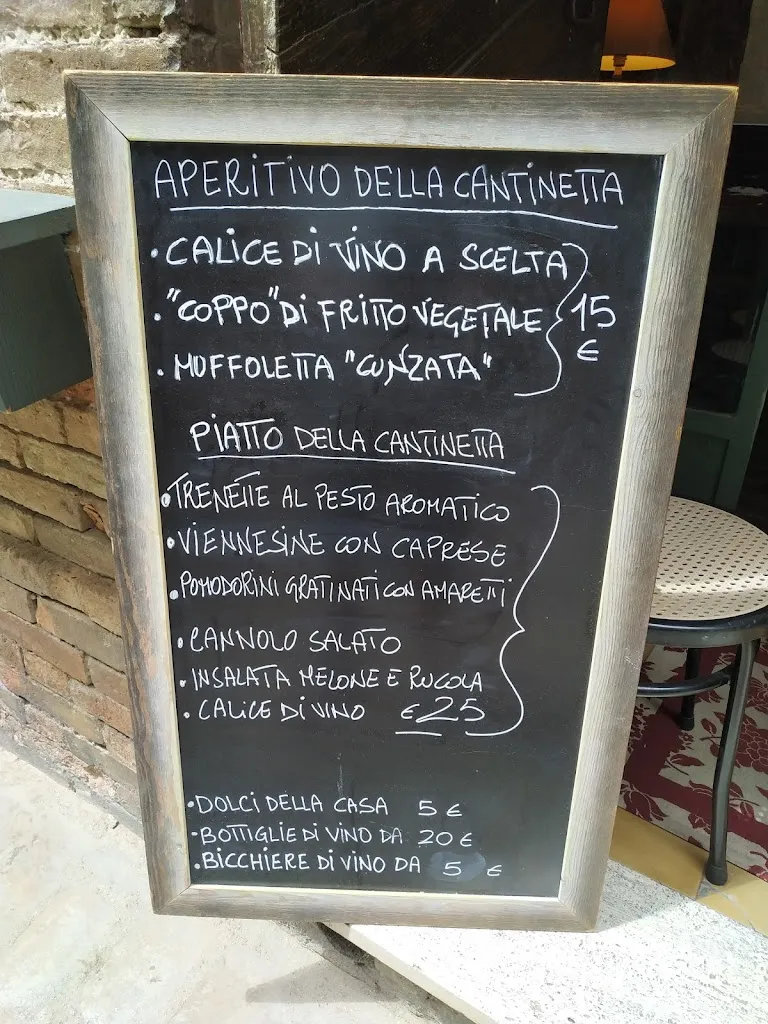 APERITIVO DELLA CANTINETTA
• CALICE DI VINO A SCELTA
• "COPPO" DI FRITTO VEGETALE
15 €
• MUFFOLETTA "CUNZATA"
PIATTO DELLA CANTINETTA
• TRENETTE AL PESTO AROMATICO
• VIENNESINE CON CAPRESE
• POMODORINI GRATINATI CON AMARETTI
• CANNOLO SALATO
• INSALATA MELONE E RUCOLA
• CALICE DI VINO €25
• DOLCI DELLA CASA 5 €
• BOTTIGLIE DI VINO DA 20 €
• BICCHIERE DI VINO DA 5 €